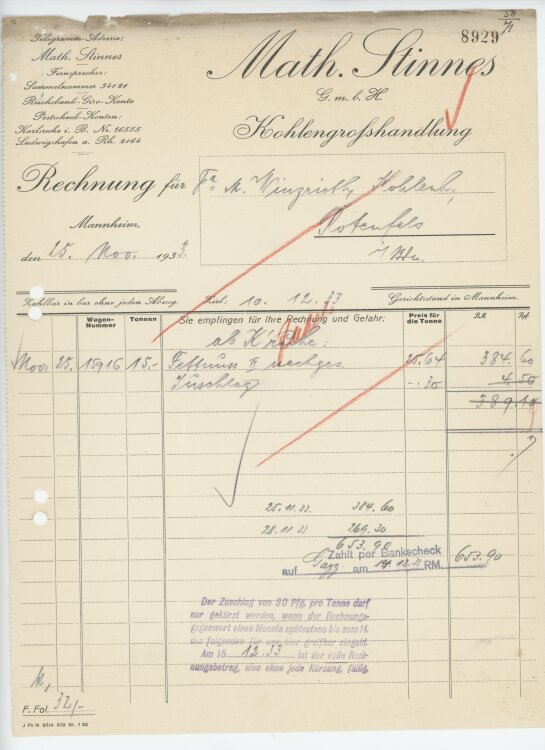 58/1
8929
Telegramm-Adresse:
Math. Stinnes
Fernsprecher:
Sammelnummer 34121
Reichsbank-Giro-Konto
Postscheck-Konten:
Karlsruhe i. B. Nr. 16555
Ludwigshafen a. Rh. 2164
Math. Stinnes
G. m. b. H.
Kohlengroßhandlung
Rechnung für Fa. M. Winzrieth, Kohlenh.,
Rotenfels
i/ Bdn.
Mannheim,
den 25. Nov. 1933.
Zahlbar in bar ohne jeden Abzug. Ziel: 10. 12. 33 Gerichtsstand in Mannheim.
Wagen-Nummer Tonnen Sie empfingen für Ihre Rechnung und Gefahr: Preis für die Tonne RM Rpf.
ab Kruhe:
Nov. 25. 15916 15.- Fettnuss II nachges. 25.64 384.60
Zuschlag -.30 4.50
389.10
25.11.33. 384.60
28.11.33 269.30
653.90
Zahlt per Bankscheck
auf Gagg am 14.12.33 RM. 653.90
Der Zuschlag von 30 Pfg. pro Tonne darf
nur gekürzt werden, wenn der Rechnungs-
gegenwert eines Monats spätestens bis zum 14.
des folgenden für uns hier greifbar eingeht.
Am 15. 12.33 ist der volle Rech-
nungsbetrag, also ohne jede Kürzung, fällig.
F. Fol. 321/-
J Ph W 9714 200 Bl. 1 33